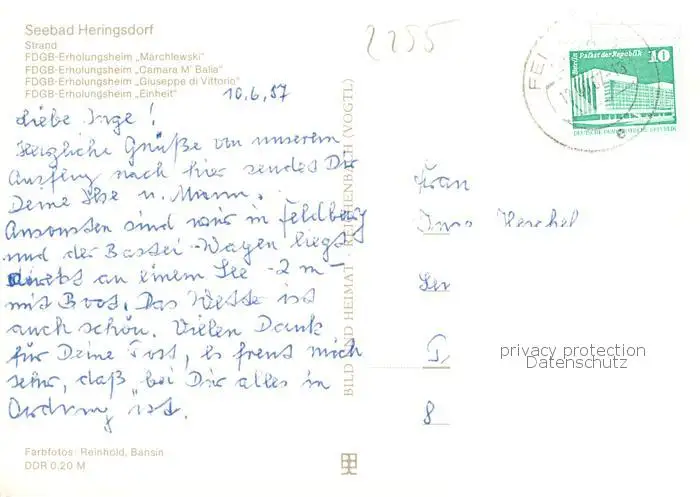 Seebad Heringsdorf
Strand
FDGB-Erholungsheim „Marchlewski"
FDGB-Erholungsheim „Camara M' Balia"
FDGB-Erholungsheim „Giuseppe di Vittorio"
FDGB-Erholungsheim „Einheit"
10.6.87
Liebe Inge!
Herzliche Grüße von unserem
Ausflug nach hier sendet Dir
Deine u. Mann.
Ansonsten sind wir in Feldberg
und der Bastei-Wagen liegt
direkt an einem See -2 m-
mit Boot. Das Wetter ist
auch schön. Vielen Dank
für Deine Post, es freut mich
sehr, daß bei Dir alles in
Ordnung ist.
Farbfotos: Reinhold, Bansin
DDR 0,20 M
BILD UND HEIMAT · REICHENBACH (VOGTL)
2255
FEL
Berlin Palast der Republik
10
DEUTSCHE DEMOKRATISCHE REPUBLIK
Frau
8
privacy protection
Datenschutz